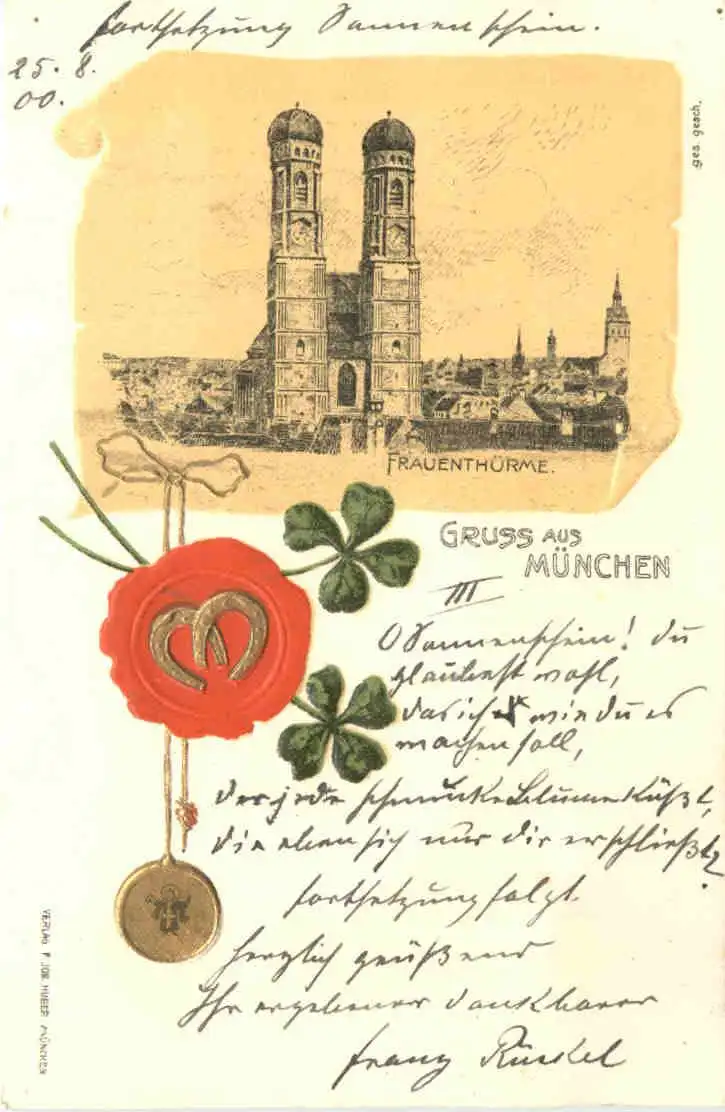 Fortsetzung Sonnenschein.
25. 8.
00.
ges. gesch.
FRAUENTHÜRME.
GRUSS AUS
MÜNCHEN
III
O Sonnenschein! du
glaubest wohl,
das ich wie du es
machen soll,
der jede schmucke Blume küßt,
die eben sich nur dir erschließt,
Fortsetzung folgt.
Herzlich grüßend
Ihr ergebener dankbarer
Franz
VERLAG F. JOS. HUBER MÜNCHEN